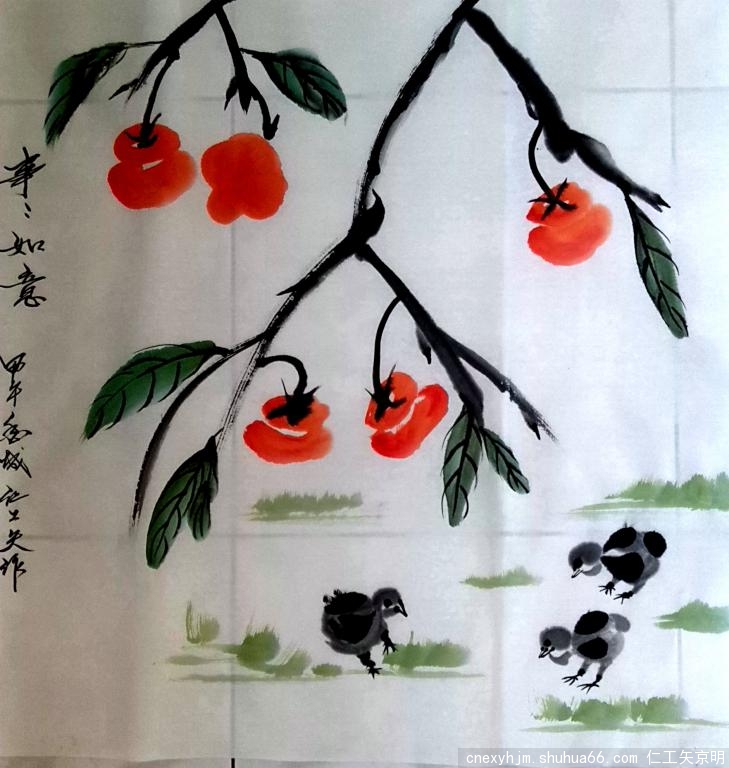 事〻如意
甲午城仁工矢作
cnexyhjm.shuhua66.com 仁工矢京明